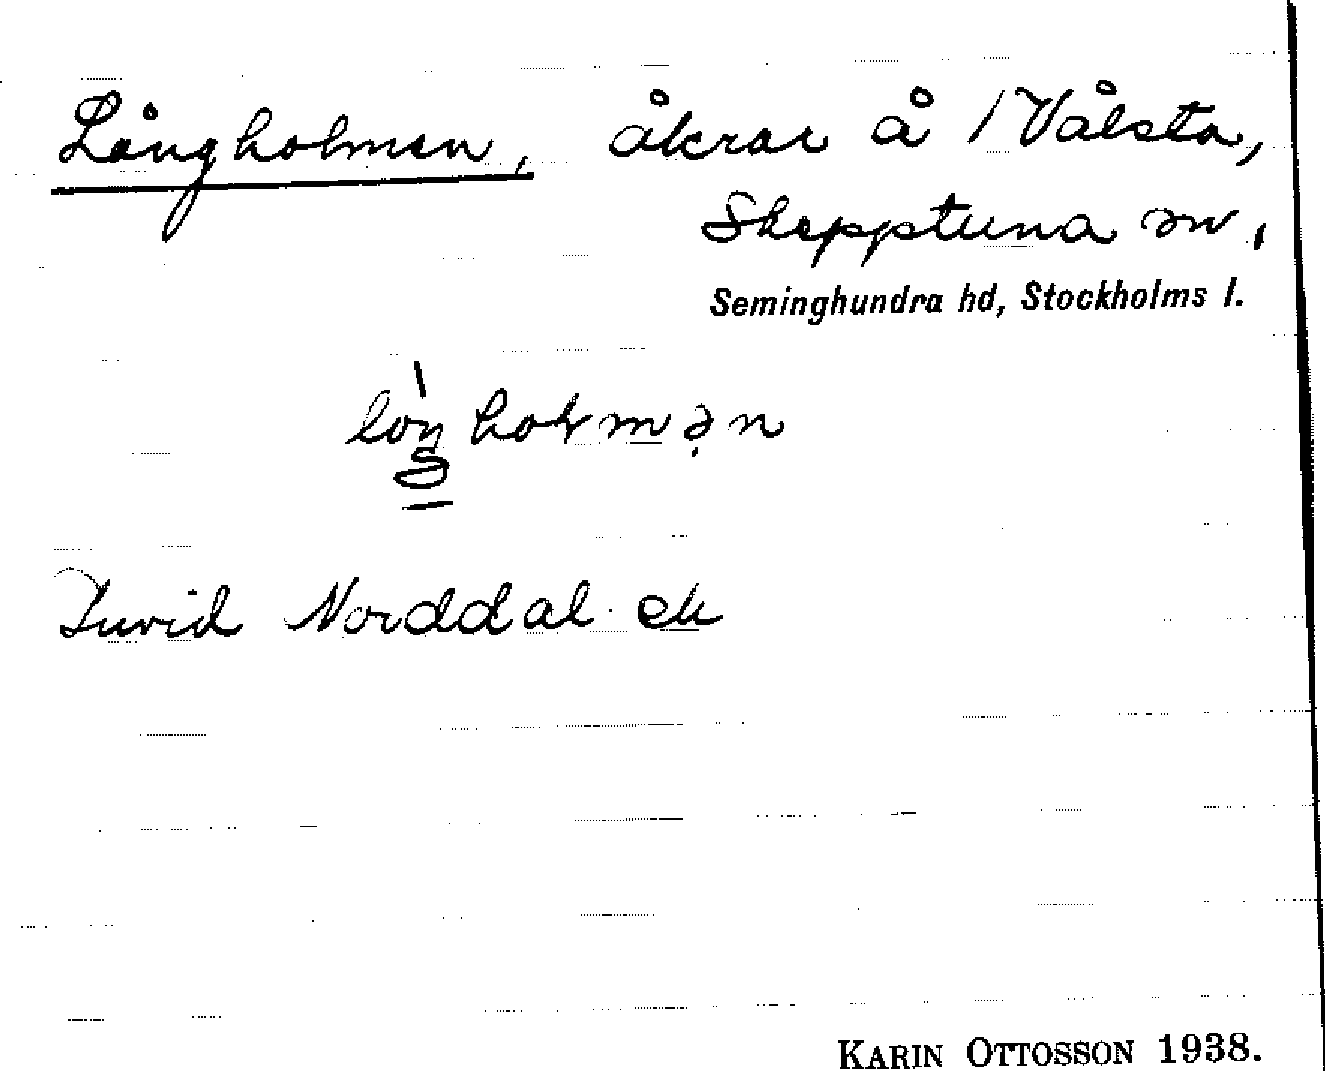 Långholmen, åkrar å 1 Vålsta,
Skepptuna sn,
Seminghundra hd, Stockholms l.
Turid Norddal
KARIN OTTOSSON 1938.